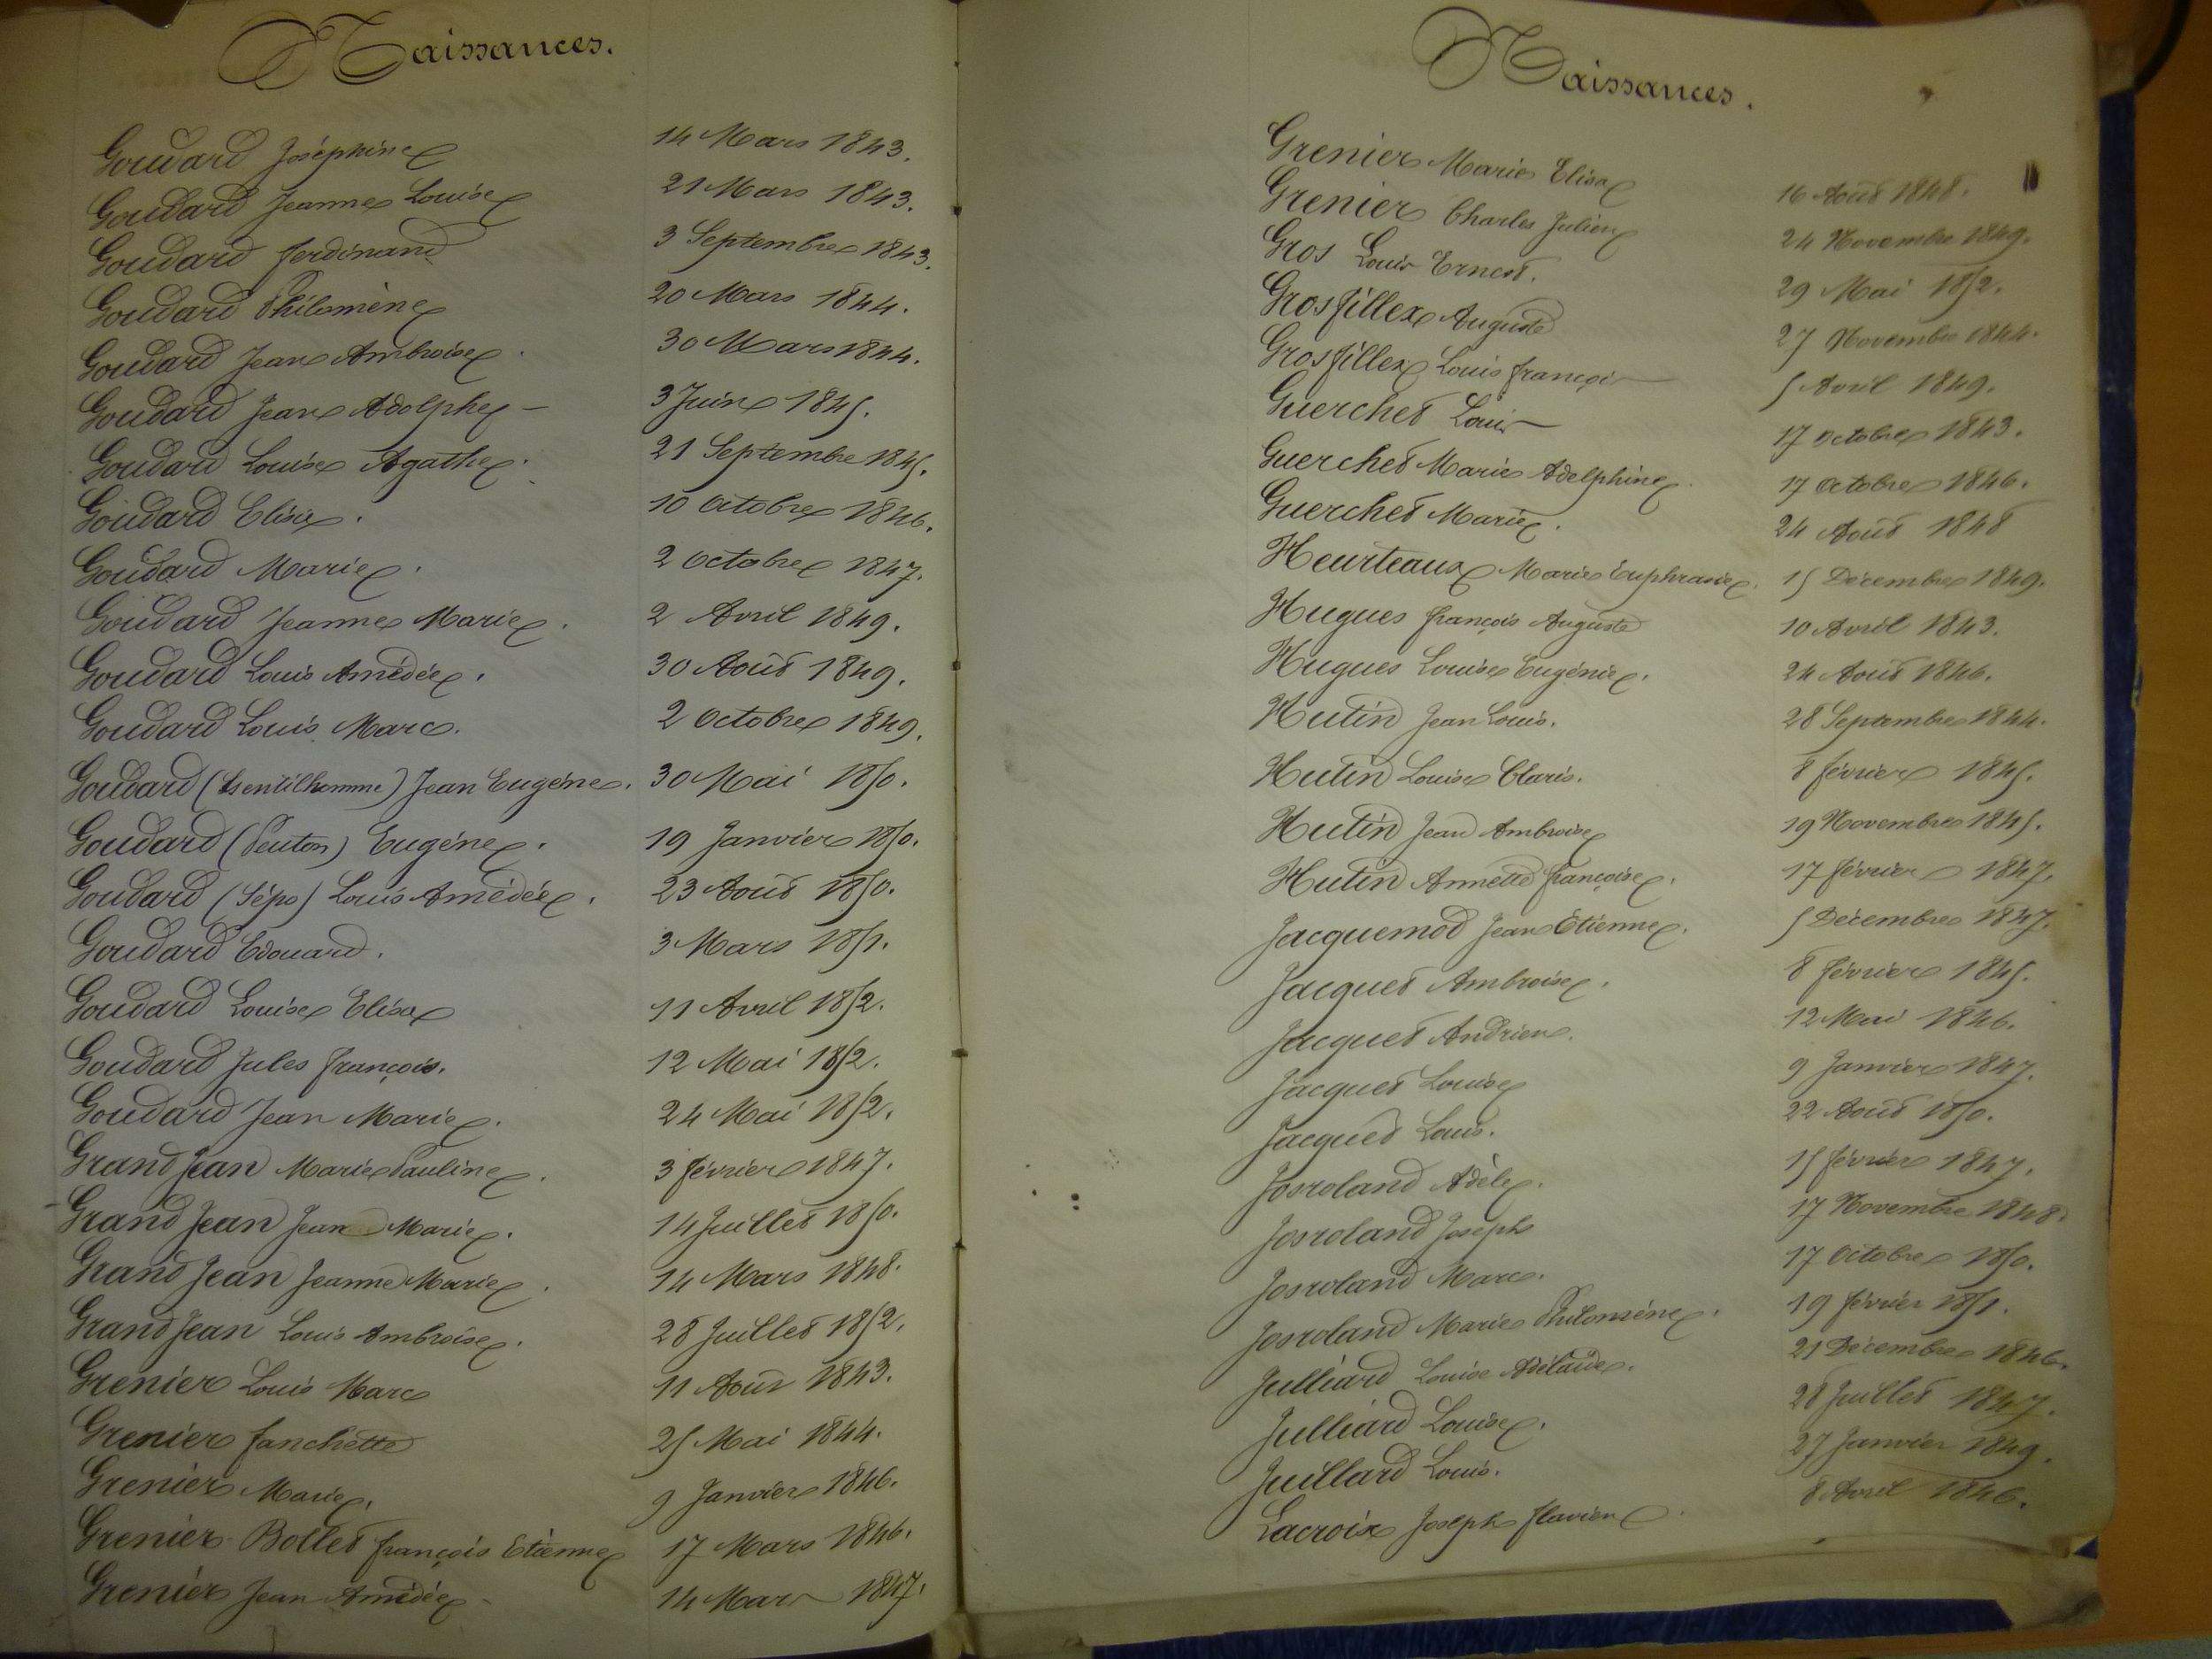 Naissances.
Goudard Joséphine 14 Mars 1843.
Goudard Jeanne Louise 21 Mars 1843.
Goudard ferdinand 3 Septembre 1843.
Goudard Philomène 20 Mars 1844.
Goudard Jean Ambroise. 30 Mars 1844.
Goudard Jean Adolphe - 3 Juin 1845.
Goudard Louise Agathe. 21 Septembre 1845.
Goudard Elisa. 10 Octobre 1846.
Goudard Marie. 2 Octobre 1847.
Goudard Jeanne Marie. 2 Avril 1849.
Goudard Louis Amédée. 30 Août 1849.
Goudard Louis Marc. 2 Octobre 1849.
Goudard (Gentilhomme) Jean Eugéne. 30 Mai 1850.
Goudard (Penton) Eugéne. 19 Janvier 1850.
Goudard (Séps) Louis Amédée. 23 Août 1850.
Goudard Edouard. 3 Mars 1851.
Goudard Louise Elisa 11 Avril 1852.
Goudard Jules françois. 12 Mai 1852.
Goudard Jean Marie. 24 Mai 1852.
GrandJean Marie Pauline. 3 février 1847.
GrandJean Jean Marie. 14 Juillet 1850.
GrandJean Jeanne Marie. 14 Mars 1848.
GrandJean Louis Ambroise. 28 Juillet 1852.
Grenier Louis Marc 11 Août 1843.
Grenier fanchette 25 Mai 1844.
Grenier Marie. 9 Janvier 1846.
Grenier Bollet françois Etienne 17 Mars 1846.
Grenier Jean Amédée - 14 Mars 1847.
Naissances.
Grenier Marie Elisa 16 Août 1848.
Grenier Charles Julien 24 Novembre 1849.
Gros Louis Ernest. 29 Mai 1852.
Grosfillex Auguste 27 Novembre 1844.
Grosfillex Louis françois 5 Avril 1849.
Guerchet Louis 17 Octobre 1843.
Guerchet Marie Adelphine. 17 Octobre 1846.
Guerchet Marie. 24 Août 1848
Heurteaux Marie Euphrasie. 15 Décembre 1849.
Hugues françois Auguste 10 Avril 1843.
Hugues Louise Eugénie. 24 Août 1846.
Hutin Jean Louis. 28 Septembre 1844.
Hutin Louise Claris. 8 février 1845.
Hutin Jean Ambroise 19 Novembre 1845.
Hutin Annette françoise. 17 février 1847.
Jacquemod Jean Etienne. 5 Décembre 1847.
Jacquet Ambroise. 8 février 1845.
Jacquet Andrien. 12 Mai 1846.
Jacquet Louise 9 Janvier 1847.
Jacquet Louis. 22 Août 1850.
Josroland Adèle. 15 février 1847.
Josroland Joseph 17 Novembre 1848.
Josroland Marc. 17 Octobre 1850.
Josroland Marie Philoméne. 19 février 1851.
Julliard Louise Adélaïde. 21 Décembre 1846.
Julliard Louise. 28 Juillet 1847.
Juillard Louis. 27 Janvier 1849.
Lacroix Joseph flavien. 8 Avril 1846.